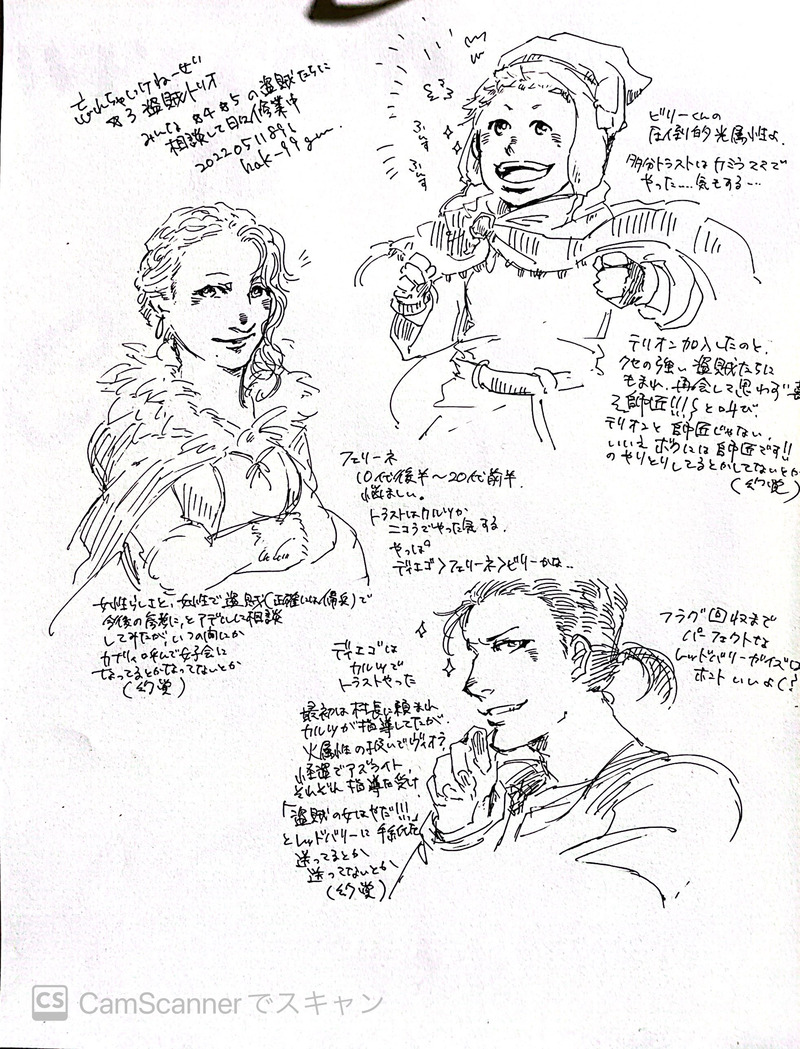 忘れちゃいけねーぜい
☆3 盗賊トリオ
みんな ☆4☆5 の盗賊たちに
相談して日々修業中
20220511
ビリーくんの
圧倒的光属性よ
多分トラストはカミラママで
やった……気もする…
ふんす
ふんす
テリオン加入したのと、
クセの強い盗賊たちに
もまれ、再会して思わず
師匠!!!!と叫び、
テリオンと師匠じゃない、
いいえ ボクには師匠です!!
のやりとりしてるとかしてないとか
(幻覚)
フェリーネ
10代後半〜20代前半、
悩ましい。
トラストはカルツか
ニコラでやった気する。
やっぱ
ディエゴ>フェリーネ>ビリーかな..
女性らしさと、女性で盗賊(正確には傭兵)で
今後の参考に、とアデルに相談
してみたが いつの間にか
女子会に
なってるとかなってないとか
(幻覚)
ディエゴは
カルツで
トラストやった
最初は村長に頼まれ
カルツが指導してたが、
火属性の扱いでヴィオラ、
アズライト、
それぞれ指導を受け
「盗賊の女はやだ!!!
とレッドバリーに手紙を
送ってるとか
送ってないとか
(幻覚)
フラグ回収まで
パーフェクトな
レッドバリーガイズは
ホント いいよ(?
CS CamScanner でスキャン